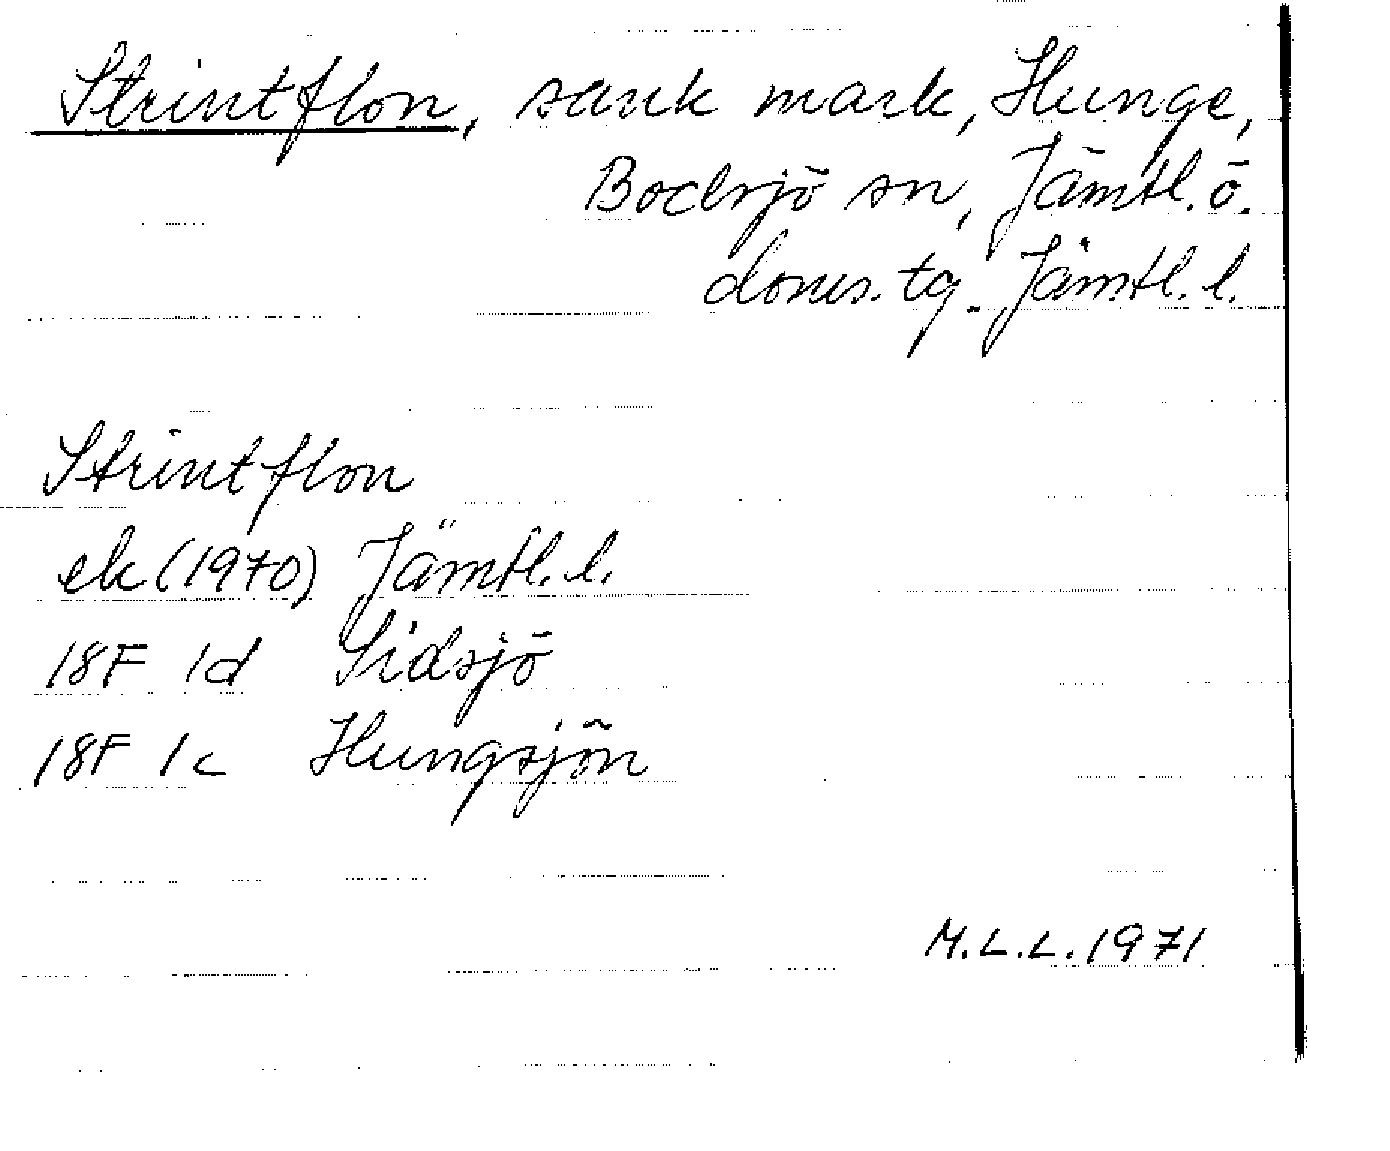 Strintflon, sank mark, Hunge,
Bodsjö sn, Jämtl. ö.
doms. tg. Jämtl. l.
Strintflon
ek (1970) Jämtl. l.
18F 1d Sidsjö
18F 1c Hungsjön
M.L.L. 1971